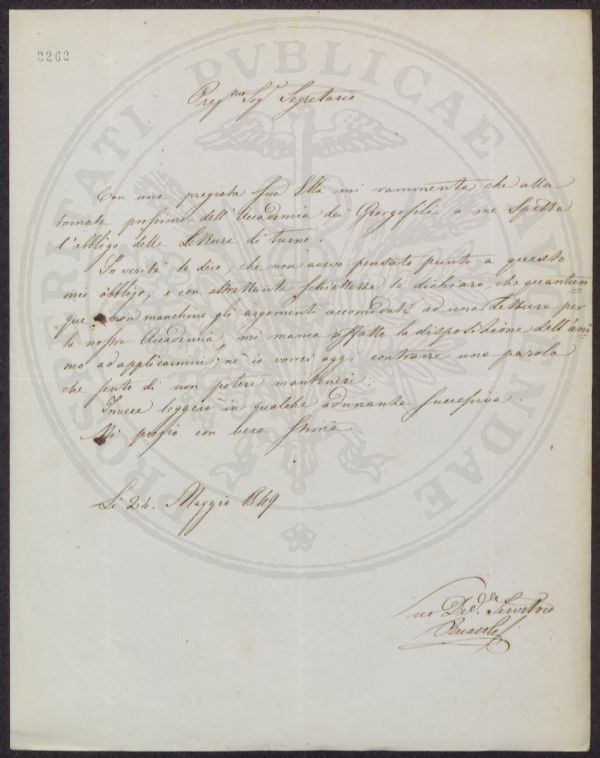 3262
PROSPERITATI PVBLICAE AVGENDAE
Preg.mo Sig.r Segretario
Con una pregiata sua Ella mi rammenta che alla
tornata prossima dell'Accademia dei Georgofili a me spetta
l'obbligo della Lettura di turno.
In verità le dico, che non avevo pensato punto a questo
mio obbligo, e con altrettanta schiettezza le dichiaro, che quantun
que non manchino gli argomenti accomodati ad una Lettura per
la nostra Accademia, mi manca affatto la disposizione dell'ani
mo ad applicarmici: nè io vorrei oggi contrarre una parola
che sento di non potere mantenere.
Invece leggerò in qualche adunanza successiva.
Mi pregio con vera stima
Li 24. Maggio 1849
Suo Dev. Servitore